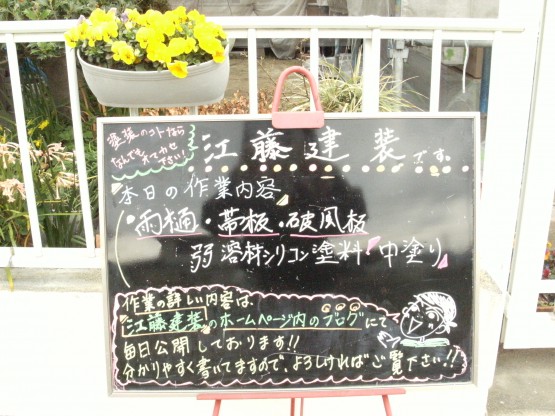 塗装のコトなら
なんでもオマカセ
下さい!
江藤建装です。
本日の作業内容
・雨樋・帯板・破風板
弱溶剤シリコン塗料 中塗り
作業の詳しい内容は
江藤建装のホームページ内のブログにて
毎日公開しております!!
分かりやすく書いてますので、よろしければご覧下さい!!